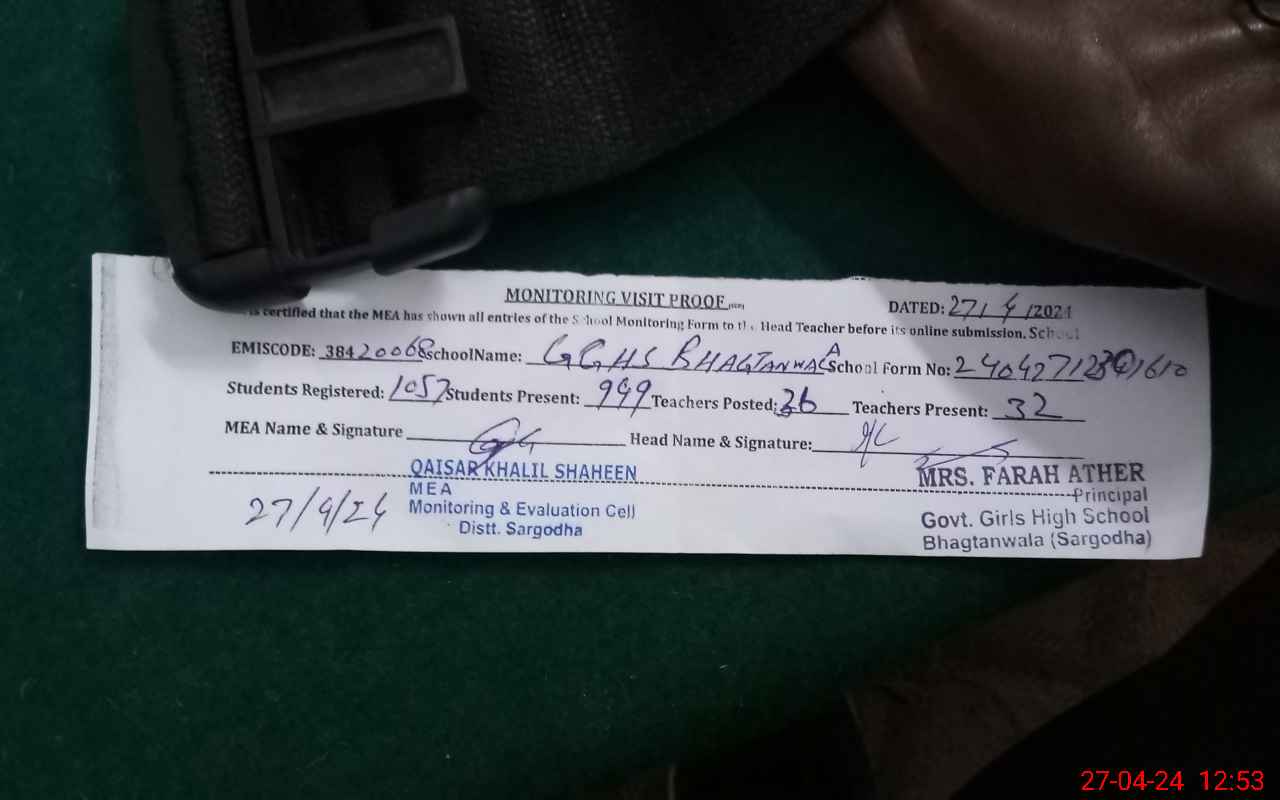 MONITORING VISIT PROOF
DATED: 27/4/2024
is certified that the MEA has shown all entries of the School Monitoring Form to the Head Teacher before its online submission. School
EMISCODE: 38420068 schoolName: GGHS BHAGTANWALA School Form No:
Students Registered: 1057 Students Present: 999 Teachers Posted: 36 Teachers Present: 32
MEA Name & Signature Head Name & Signature:
QAISAR KHALIL SHAHEEN
MEA
Monitoring & Evaluation Cell
Distt. Sargodha
27/4/24
MRS. FARAH ATHER
Principal
Govt. Girls High School
Bhagtanwala (Sargodha)
27-04-24 12:53